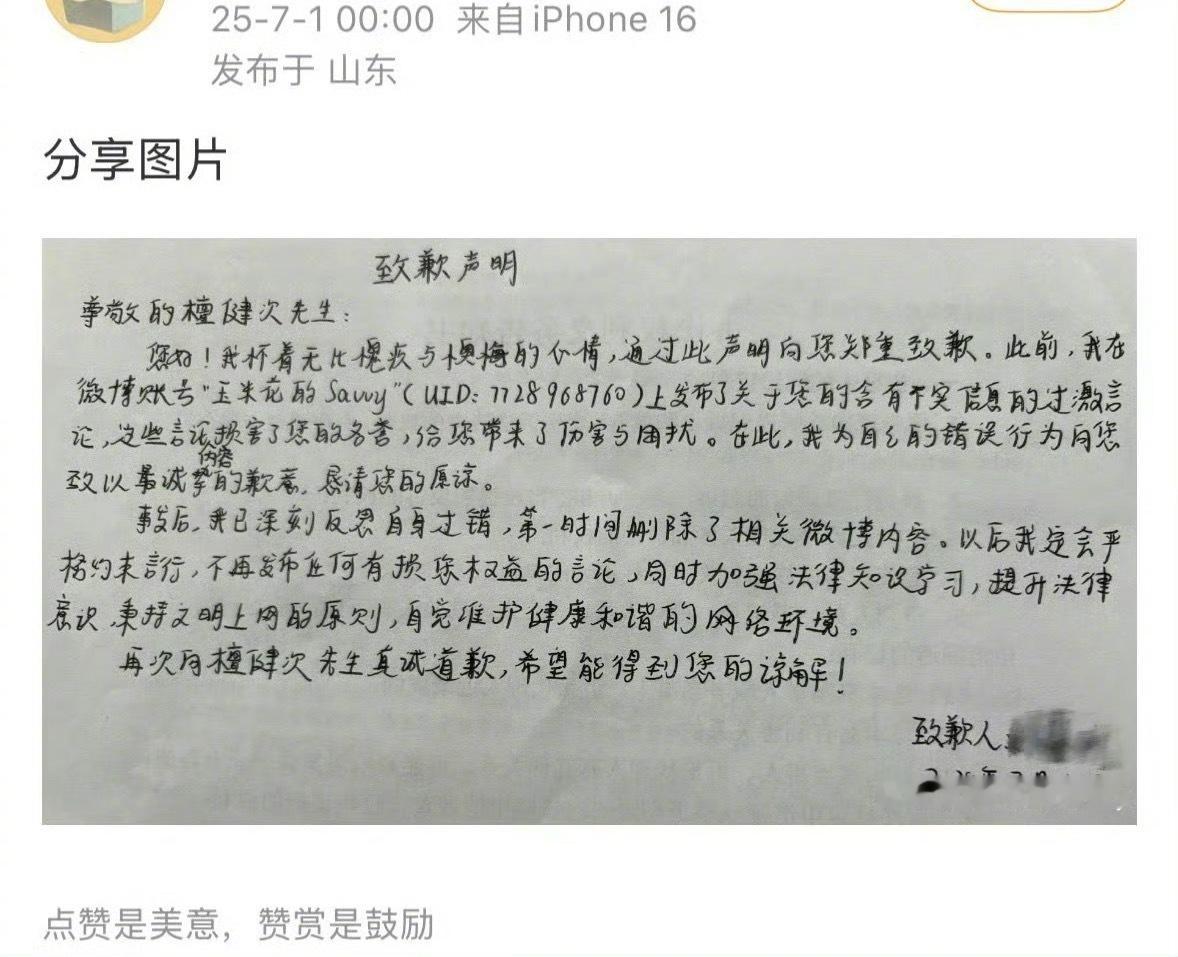 25-7-1 00:00 来自iPhone 16
发布于 山东
分享图片
致歉声明
尊敬的檀健次先生：
您好！我怀着无比愧疚与懊悔的心情，通过此声明向您郑重致歉。此前，我在
微博账号"玉米花的Savvy"（UID：7728968760）上发布了关于您的含有不实信息的过激言
论，这些言论损害了您的名誉，给您带来了伤害与困扰。在此，我为自己的错误行为向您
内容
致以最诚挚的歉意，恳请您的原谅。
事发后，我已深刻反思自身过错，第一时间删除了相关微博内容。以后我定会严
格约束言行，不再发布任何有损您权益的言论，同时加强法律知识学习，提升法律
意识，秉持文明上网的原则，自觉维护健康和谐的网络环境。
再次向檀健次先生真诚道歉，希望能得到您的谅解！
致歉人
点赞是美意，赞赏是鼓励